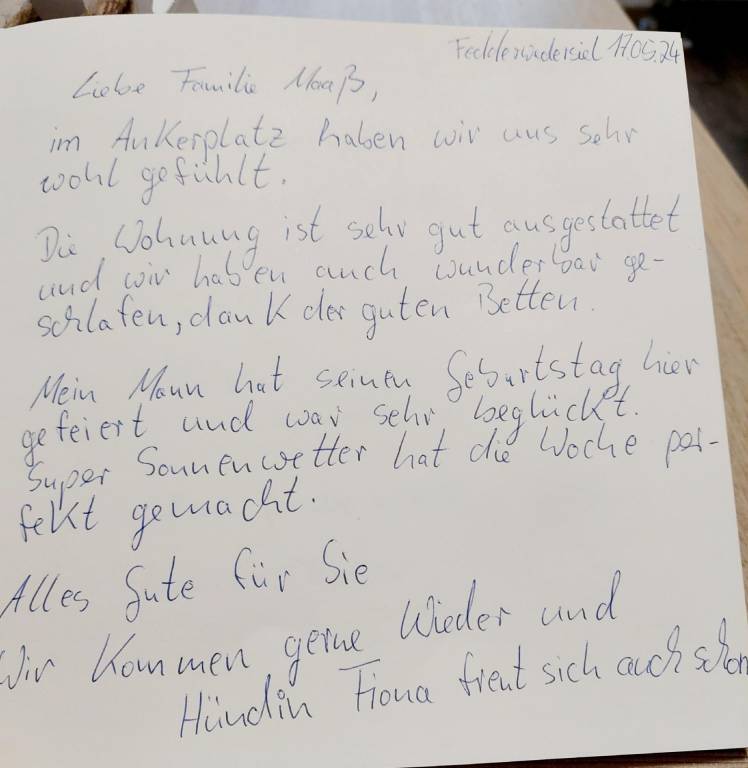 Fedderwardersiel 17.05.24
Liebe Familie Maaß,
im Ankerplatz haben wir uns sehr
wohl gefühlt.
Die Wohnung ist sehr gut ausgestattet
und wir haben auch wunderbar ge-
schlafen, dank der guten Betten.
Mein Mann hat seinen Geburtstag hier
gefeiert und war sehr beglückt.
Super Sonnenwetter hat die Woche per-
fekt gemacht.
Alles Gute für Sie
Wir kommen gerne wieder und
Hündin Fiona freut sich auch schon